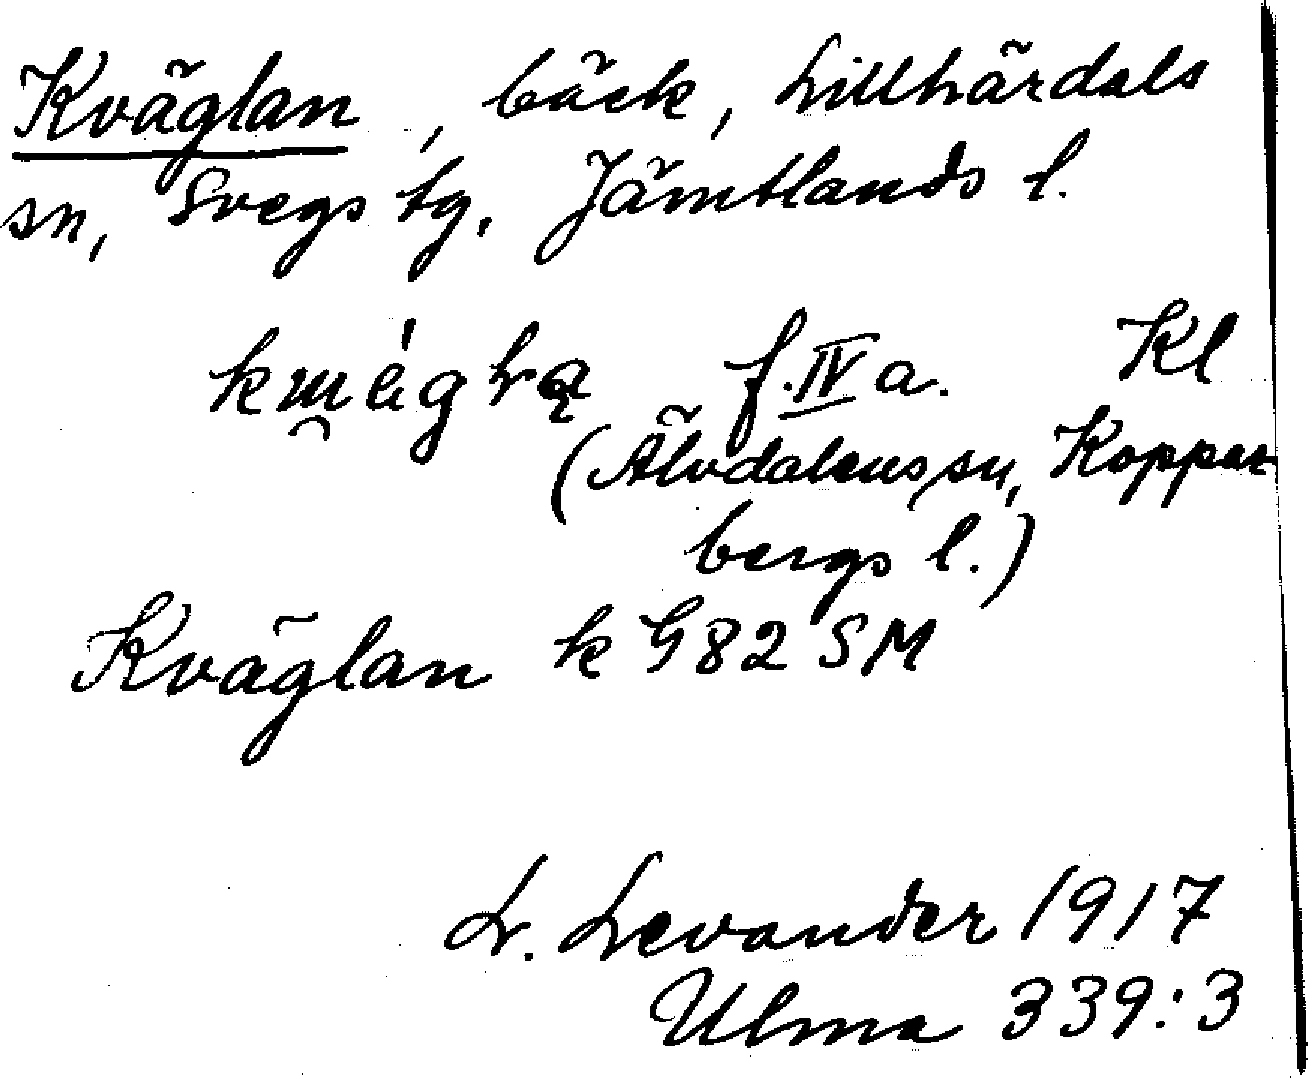 Kväglan, bäck, Lillhärdals
sn, Svegs tg, Jämtlands l.
f. IV a. Kl
(Älvdalens sn, Koppar-
bergs l.)
Kväglan k G82 SM
L. Levander 1917
Ulma 339:3